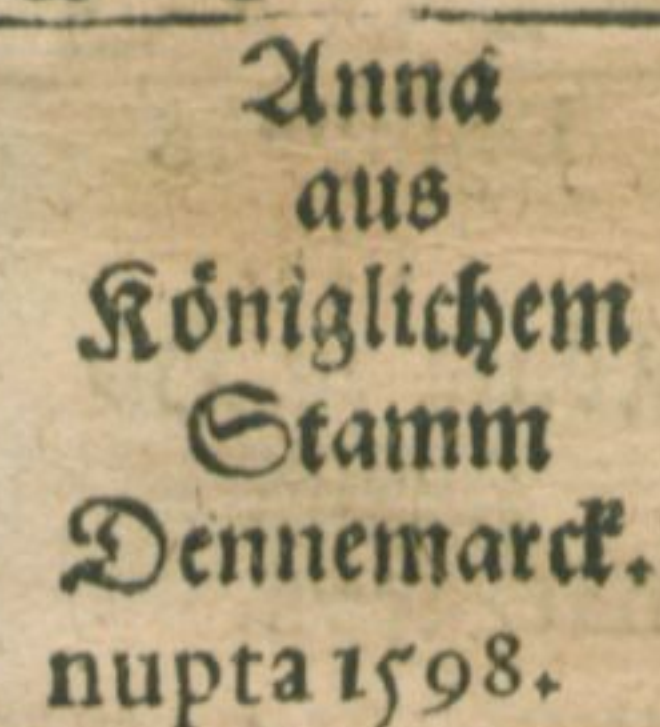 Anna
aus
Königlichem
Stamm
Dennemarck.
nupta 1598.